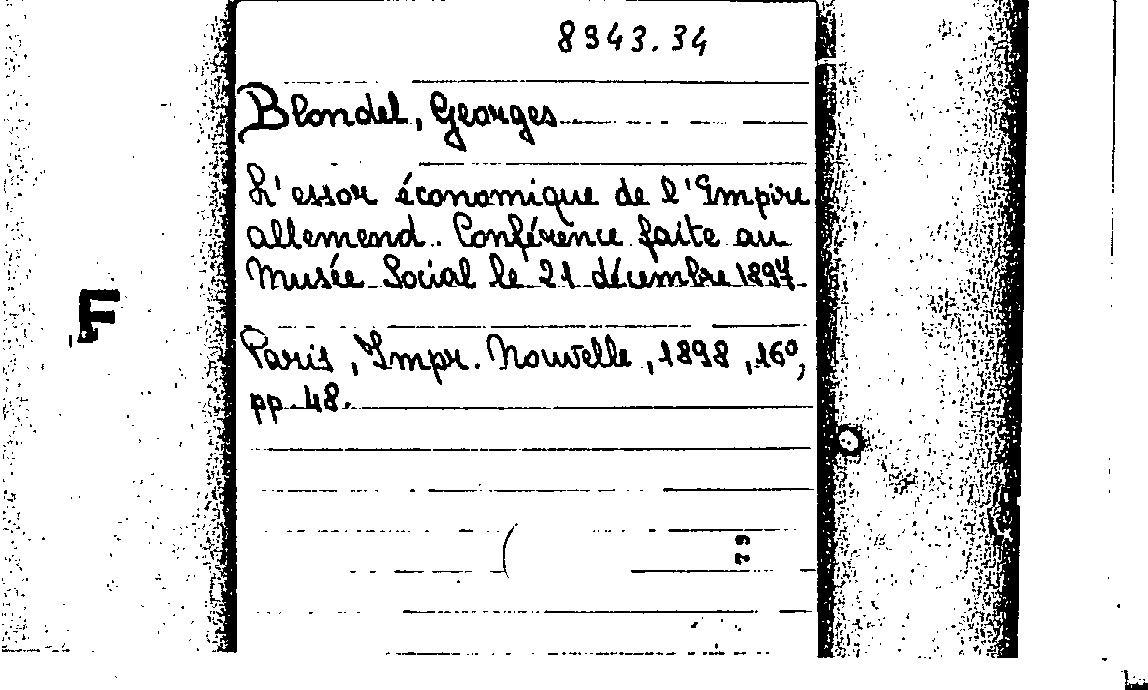 8943.34
Blondel, Georges
L'essor économique de l'Impire
allemend. Conférence faite au
Musée Social le 21 décembre 1897.
Paris, Impr. Nouvelle, 1898, 16º,
pp. 48.
79
F